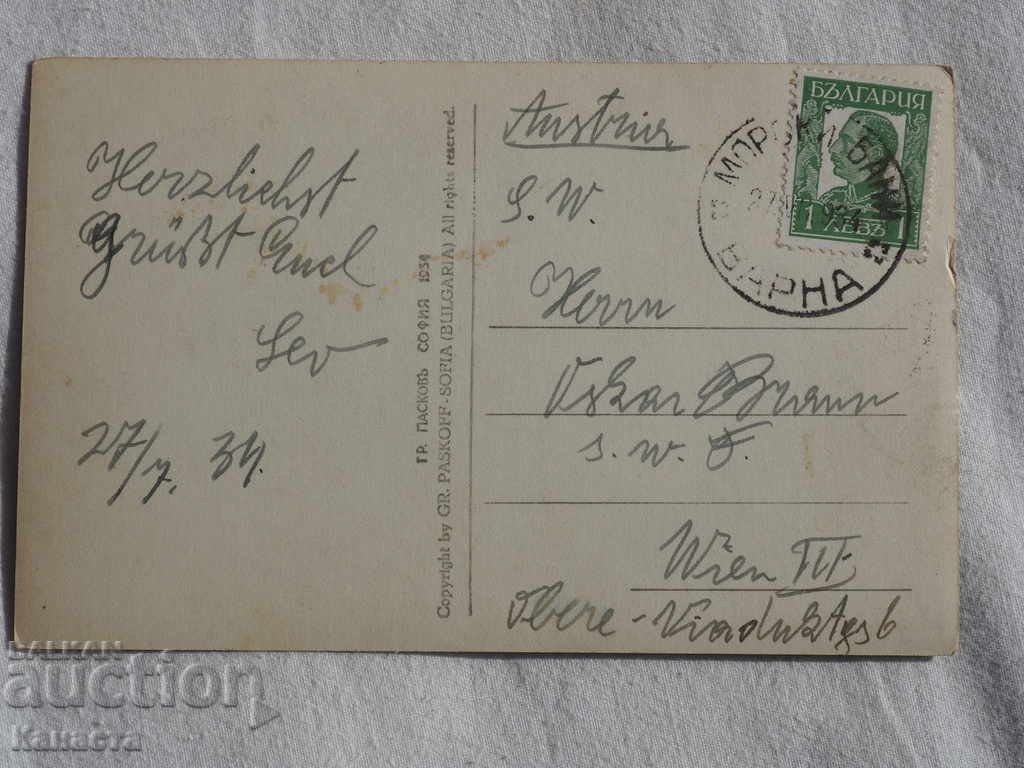 Herzlichst
Grüßt Euch
Leo
27/7. 34.
ГР. ПАСКОВЪ СОФИЯ 1934
Copyright by GR. PASKOFF-SOFIA (BULGARIA) All rights reserved.
Austria
S. W.
Herrn
Oskar Braun
s. w. F.
Wien III.
Obere-Viaduktgs 6
БЪЛГАРИЯ
1 ЛЕВЪ 1
МОРСКИ БАНИ
ВАРНА
BALKAN
auction
Канаста